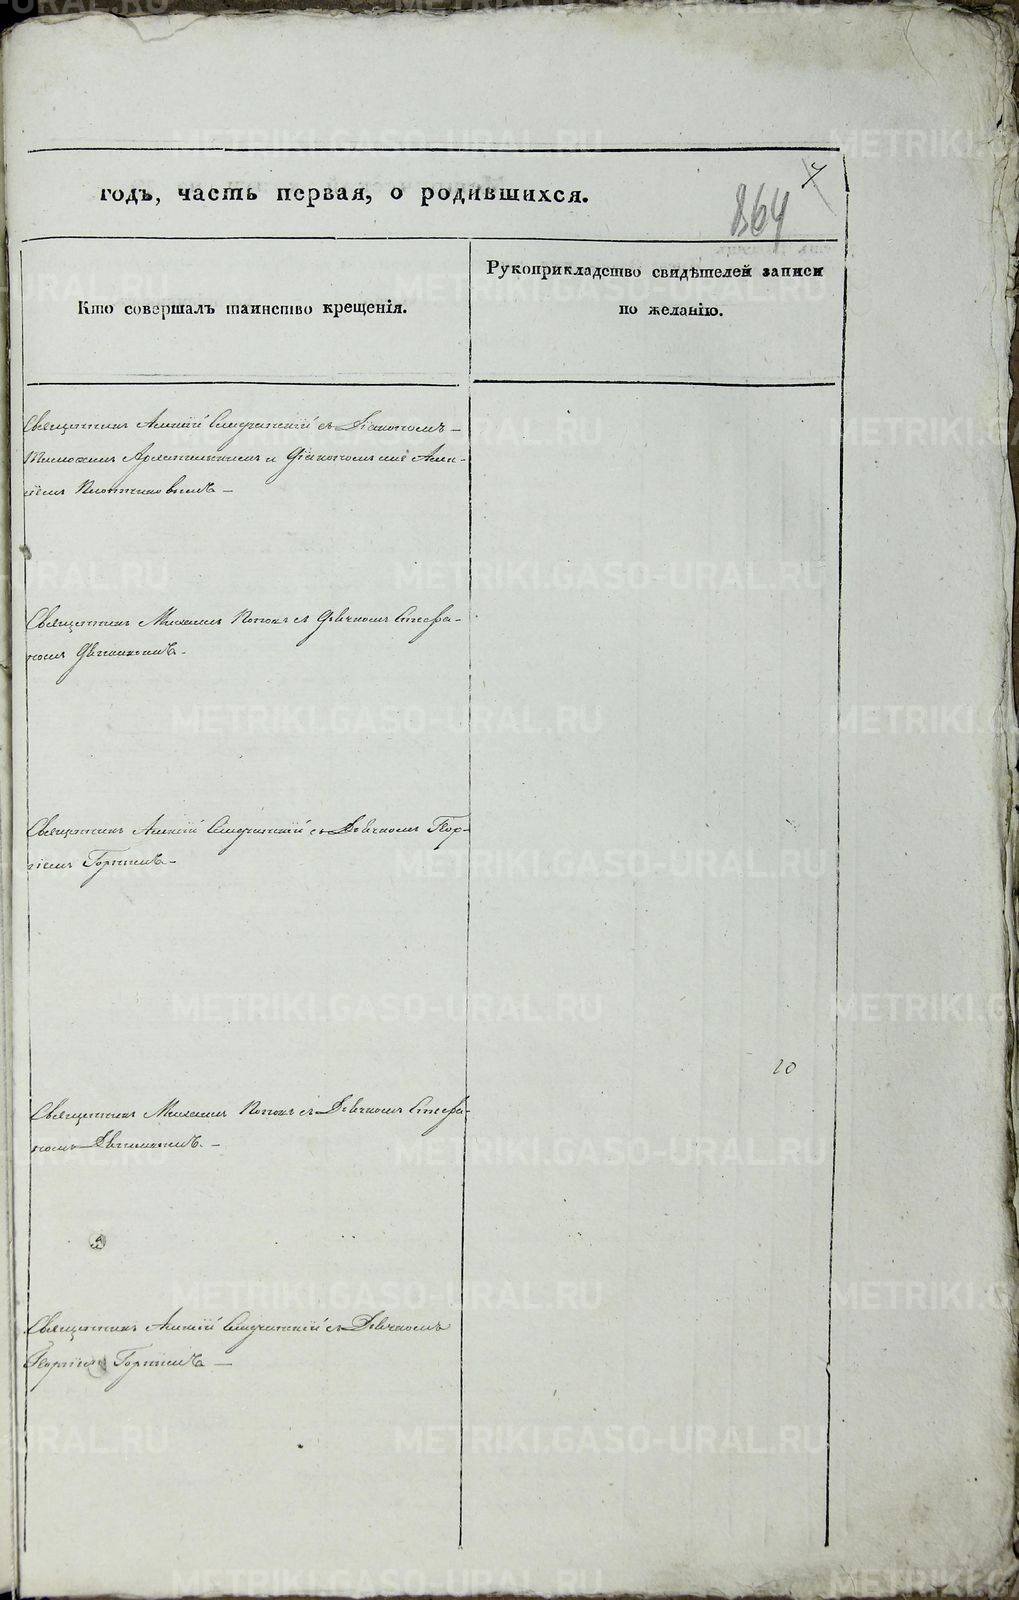 годъ, часть первая, о родившихся.
7
864
Кто совершалъ таинство крещенія.
Рукоприкладство свидѣтелей записи
по желанію.
Священникъ Алексій съ Діакономъ
и Діакономъ Алек-
сіемъ Плотниковымъ
Священникъ Михаилъ Поповъ съ Дьячкомъ Стефа-
номъ
Священникъ Алексій съ Дьячкомъ Геор-
гіемъ
20
Священникъ Михаилъ Поповъ съ Дьячкомъ Стефа-
номъ
Священникъ Алексій съ Дьячкомъ
Георгіемъ
METRIKI.GASO-URAL.RU